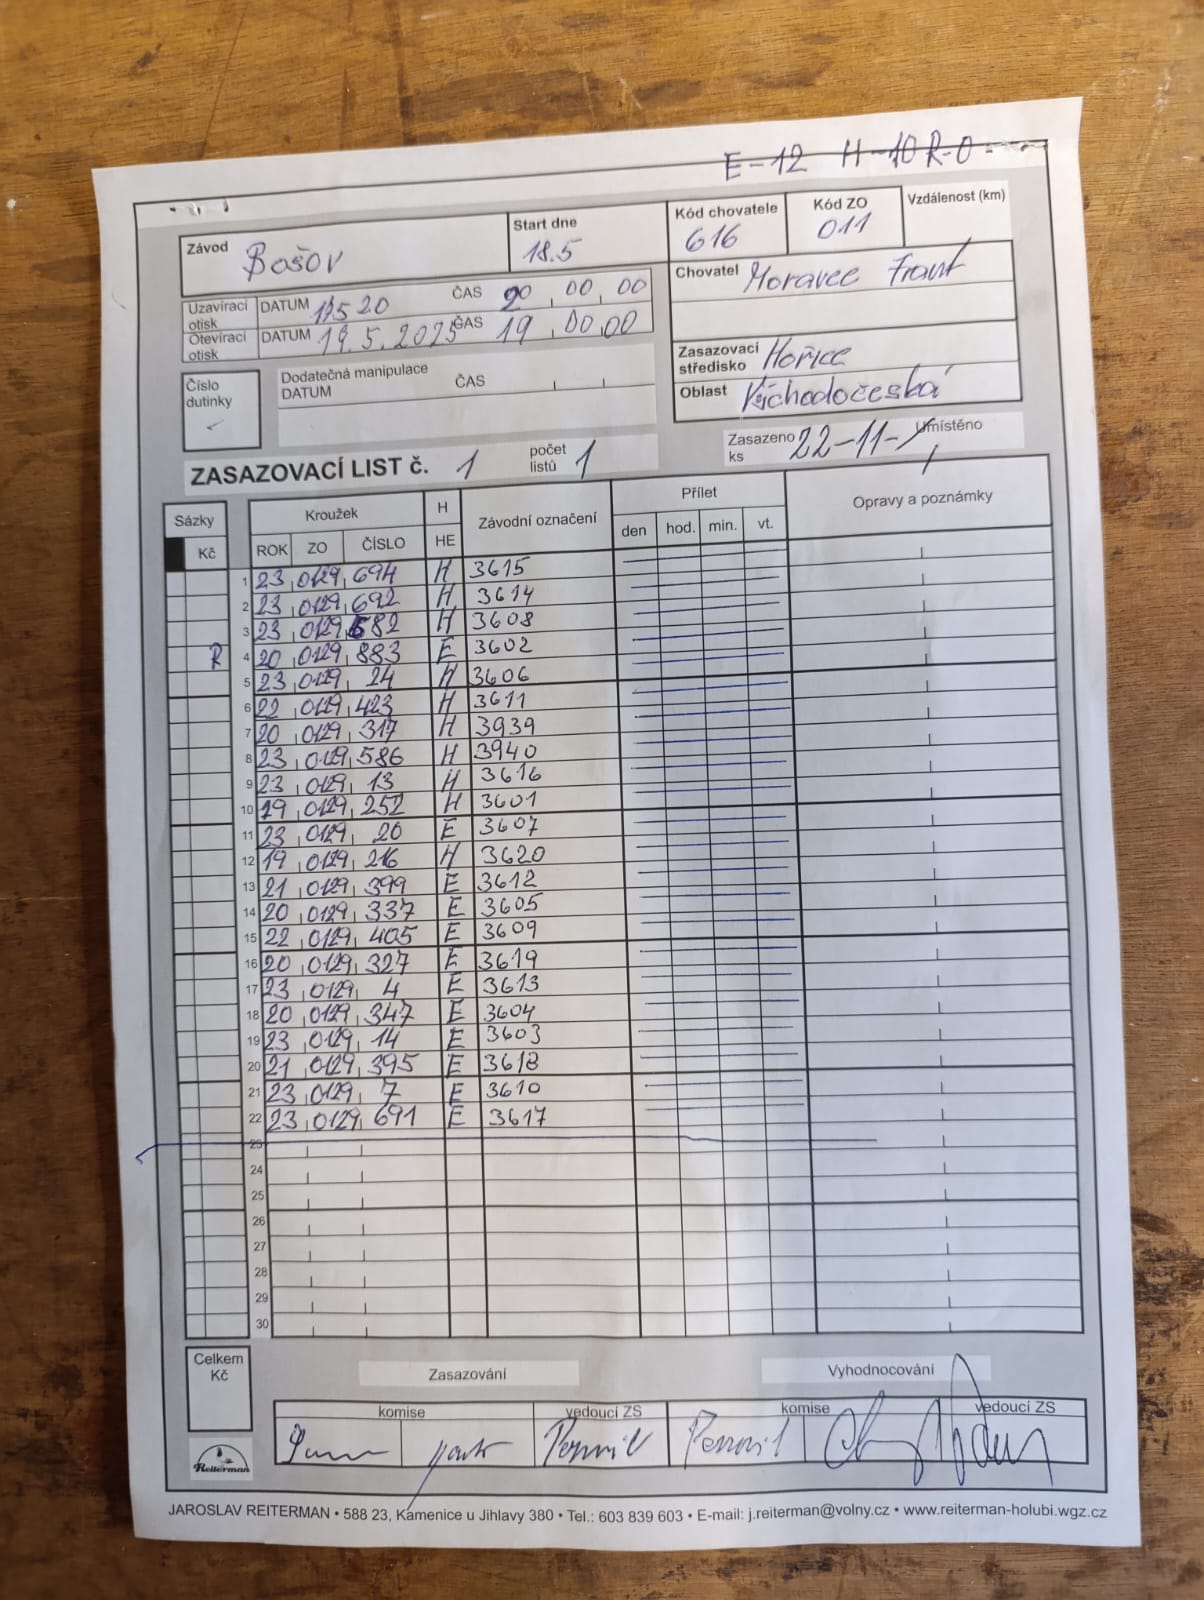 E-12 H-10 R-0
Závod Bošov
Start dne 18.5
Kód chovatele 616
Kód ZO 011
Vzdálenost (km)
Uzavírací otisk DATUM ČAS 20 00 00
Otevírací otisk DATUM 19.5.2025 ČAS 19 00 00
Chovatel Moravec Frant
Číslo dutinky
Dodatečná manipulace
DATUM ČAS
Zasazovací středisko Hořice
Oblast Východočeská
ZASAZOVACÍ LIST č. 1 počet listů 1
Zasazeno ks 22-11- Umístěno
Sázky Kroužek H Závodní označení Přílet Opravy a poznámky
Kč ROK ZO ČÍSLO HE den hod. min. vt.
1 23 0129 694 H 3615
2 23 0129 692 H 3614
3 23 0129 682 H 3608
R 4 20 0129 883 E 3602
5 23 0129 24 H 3606
6 22 0129 423 H 3611
7 20 0129 317 H 3939
8 23 0129 586 H 3940
9 23 0129 13 H 3616
10 19 0129 252 H 3601
11 23 0129 20 E 3607
12 19 0129 216 H 3620
13 21 0129 399 E 3612
14 20 0129 337 E 3605
15 22 0129 405 E 3609
16 20 0129 327 E 3619
17 23 0129 4 E 3613
18 20 0129 347 E 3604
19 23 0129 14 E 3603
20 21 0129 395 E 3618
21 23 0129 7 E 3610
22 23 0129 691 E 3617
23
24
25
26
27
28
29
30
Celkem Kč
Zasazování Vyhodnocování
komise vedoucí ZS komise vedoucí ZS
Reiterman
JAROSLAV REITERMAN • 588 23, Kamenice u Jihlavy 380 • Tel.: 603 839 603 • E-mail: j.reiterman@volny.cz • www.reiterman-holubi.wgz.cz